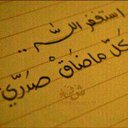 استغفر الله ..
كلّ ماضاق صدري